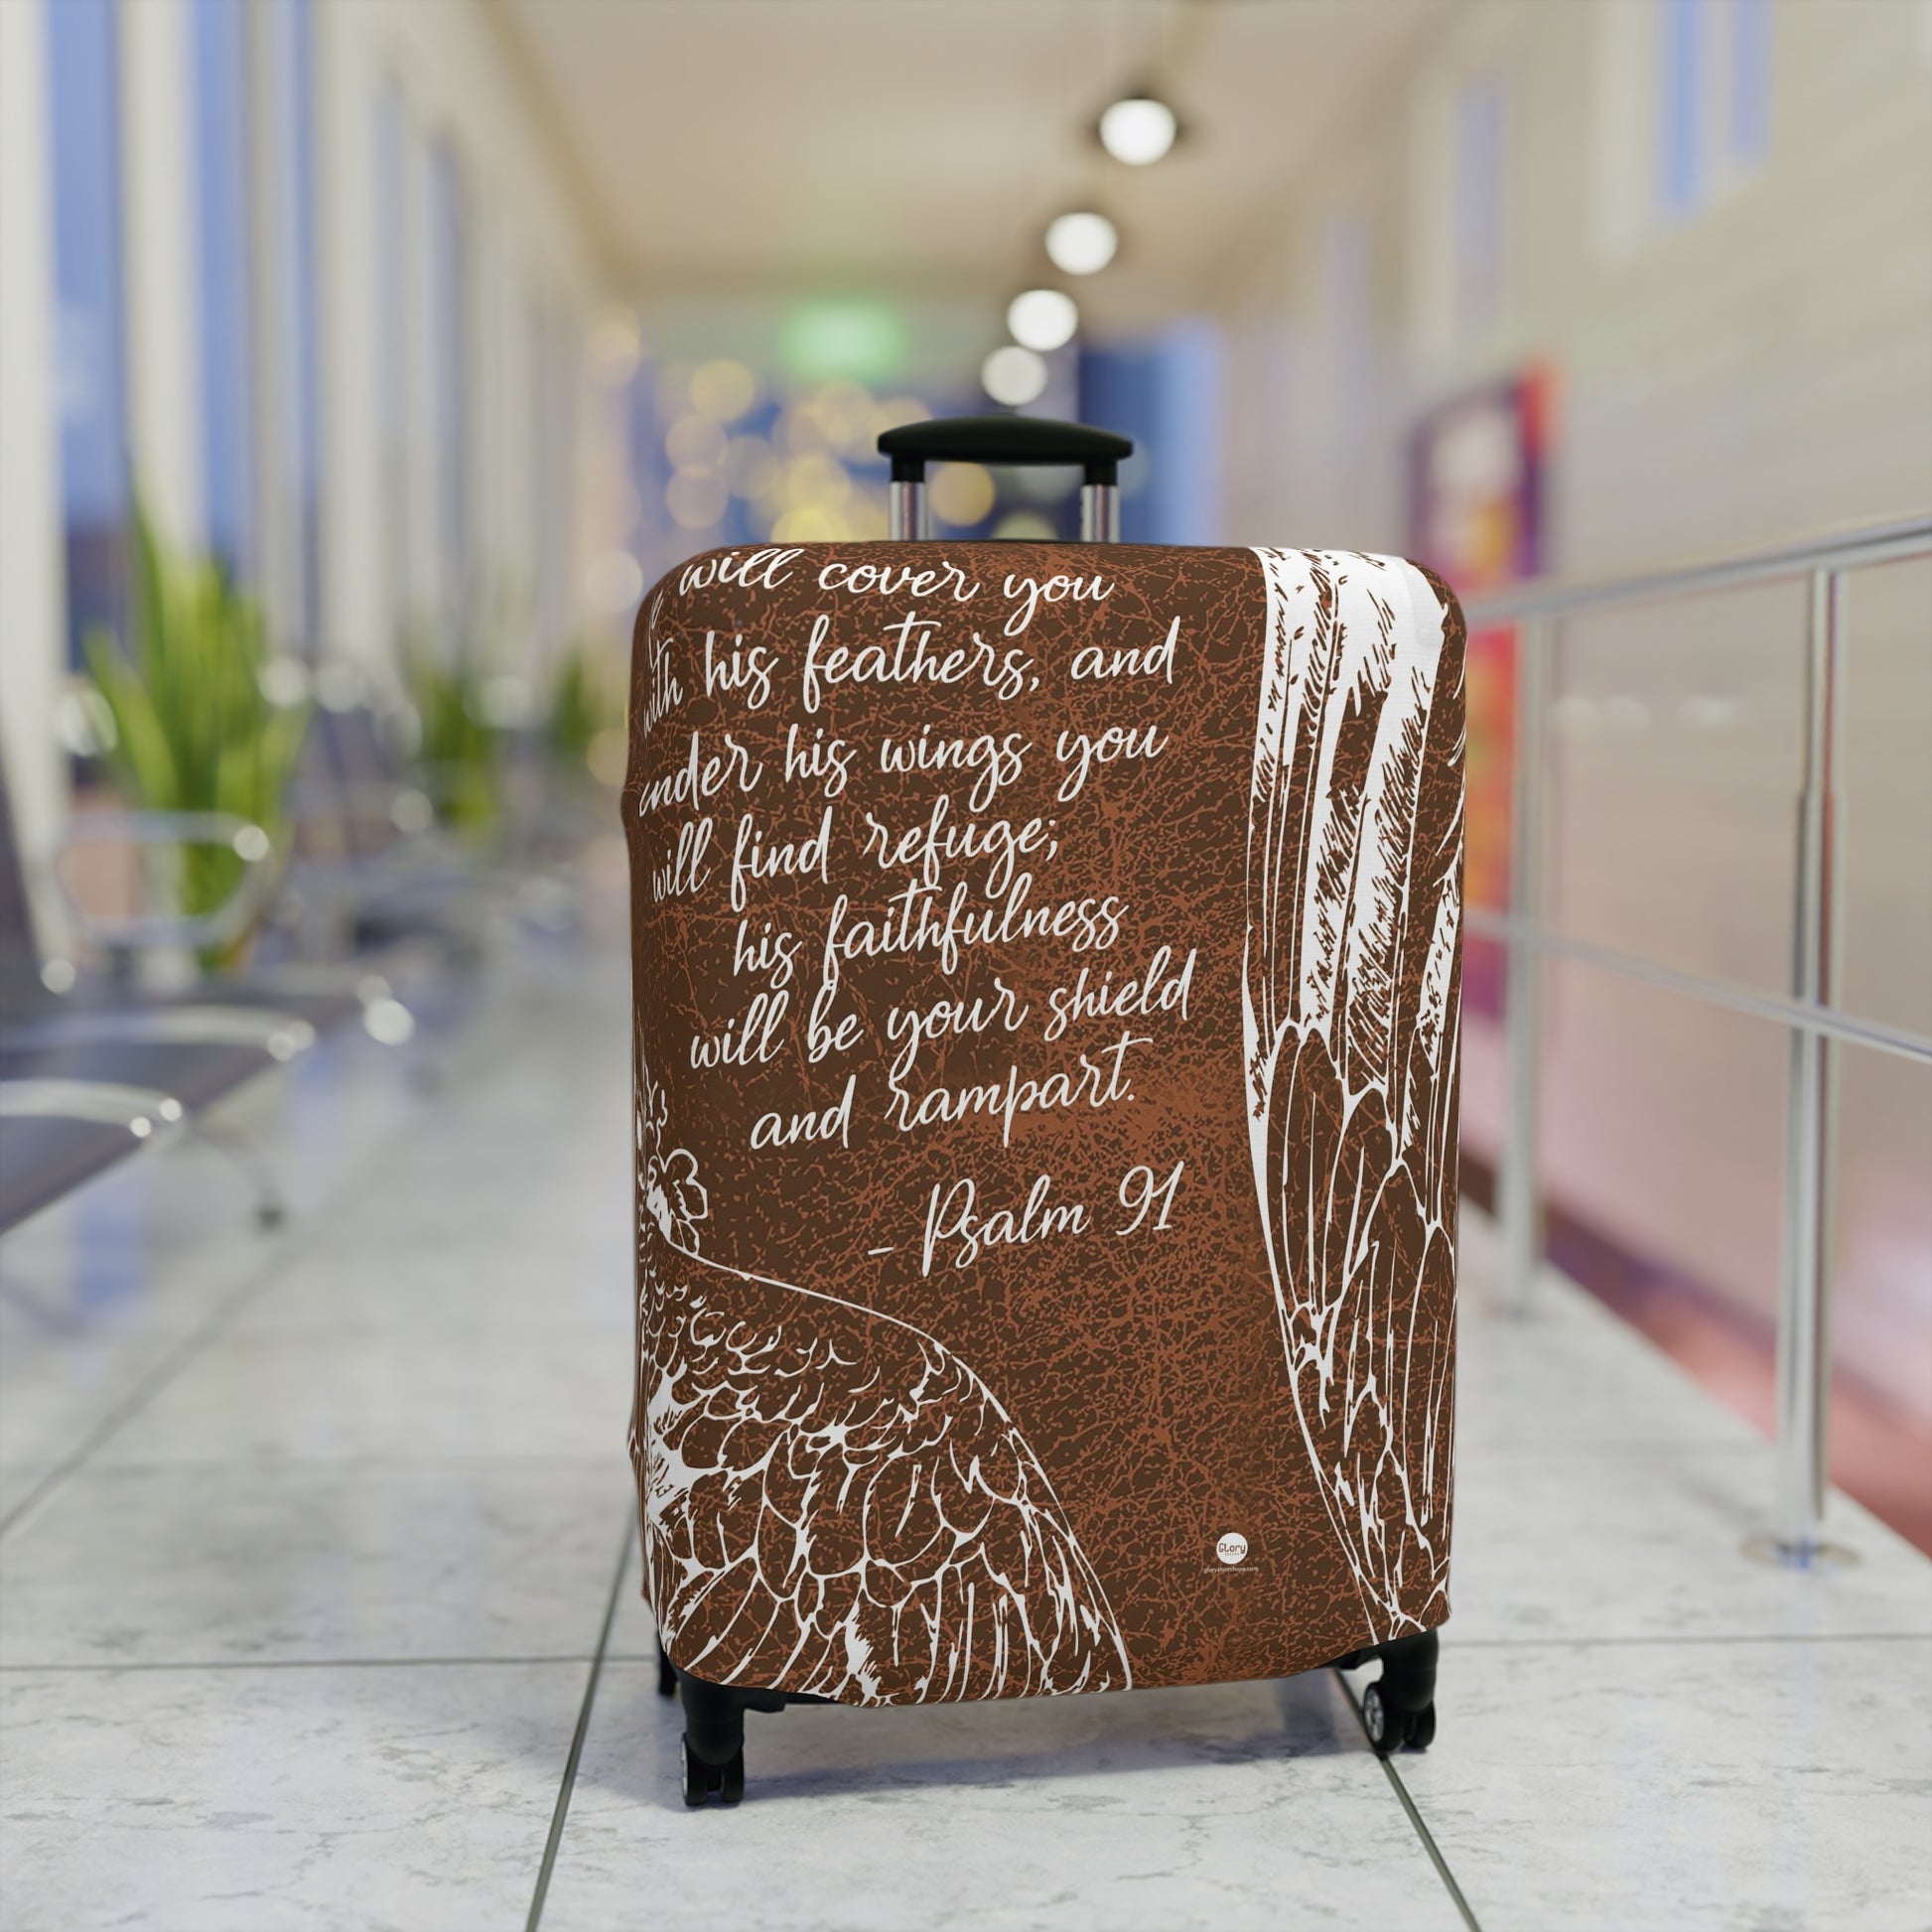 will cover you
with his feathers, and
under his wings you
will find refuge;
his faithfulness
will be your shield
and rampart.
- Psalm 91
Glory